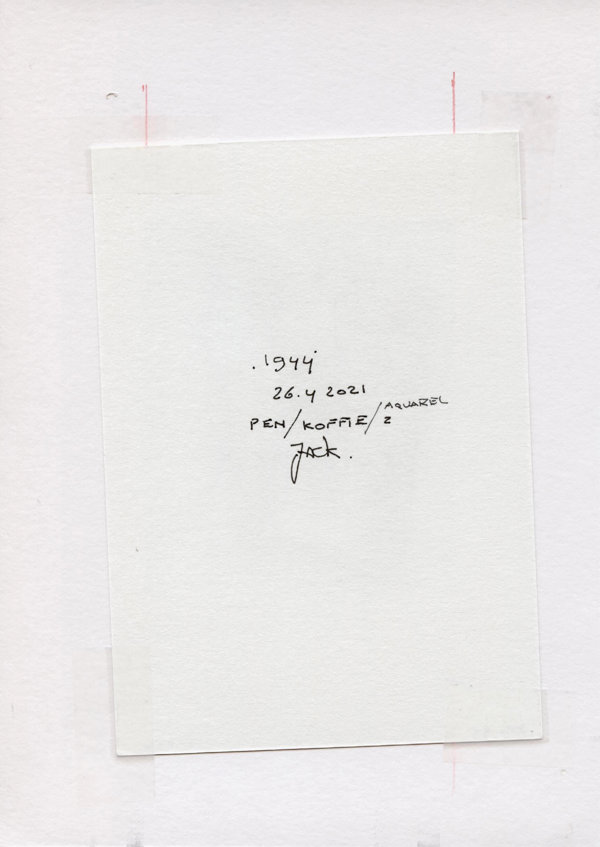 . 1944
26.4 2021
PEN/KOFFIE/AQUAREL
2
Jack.